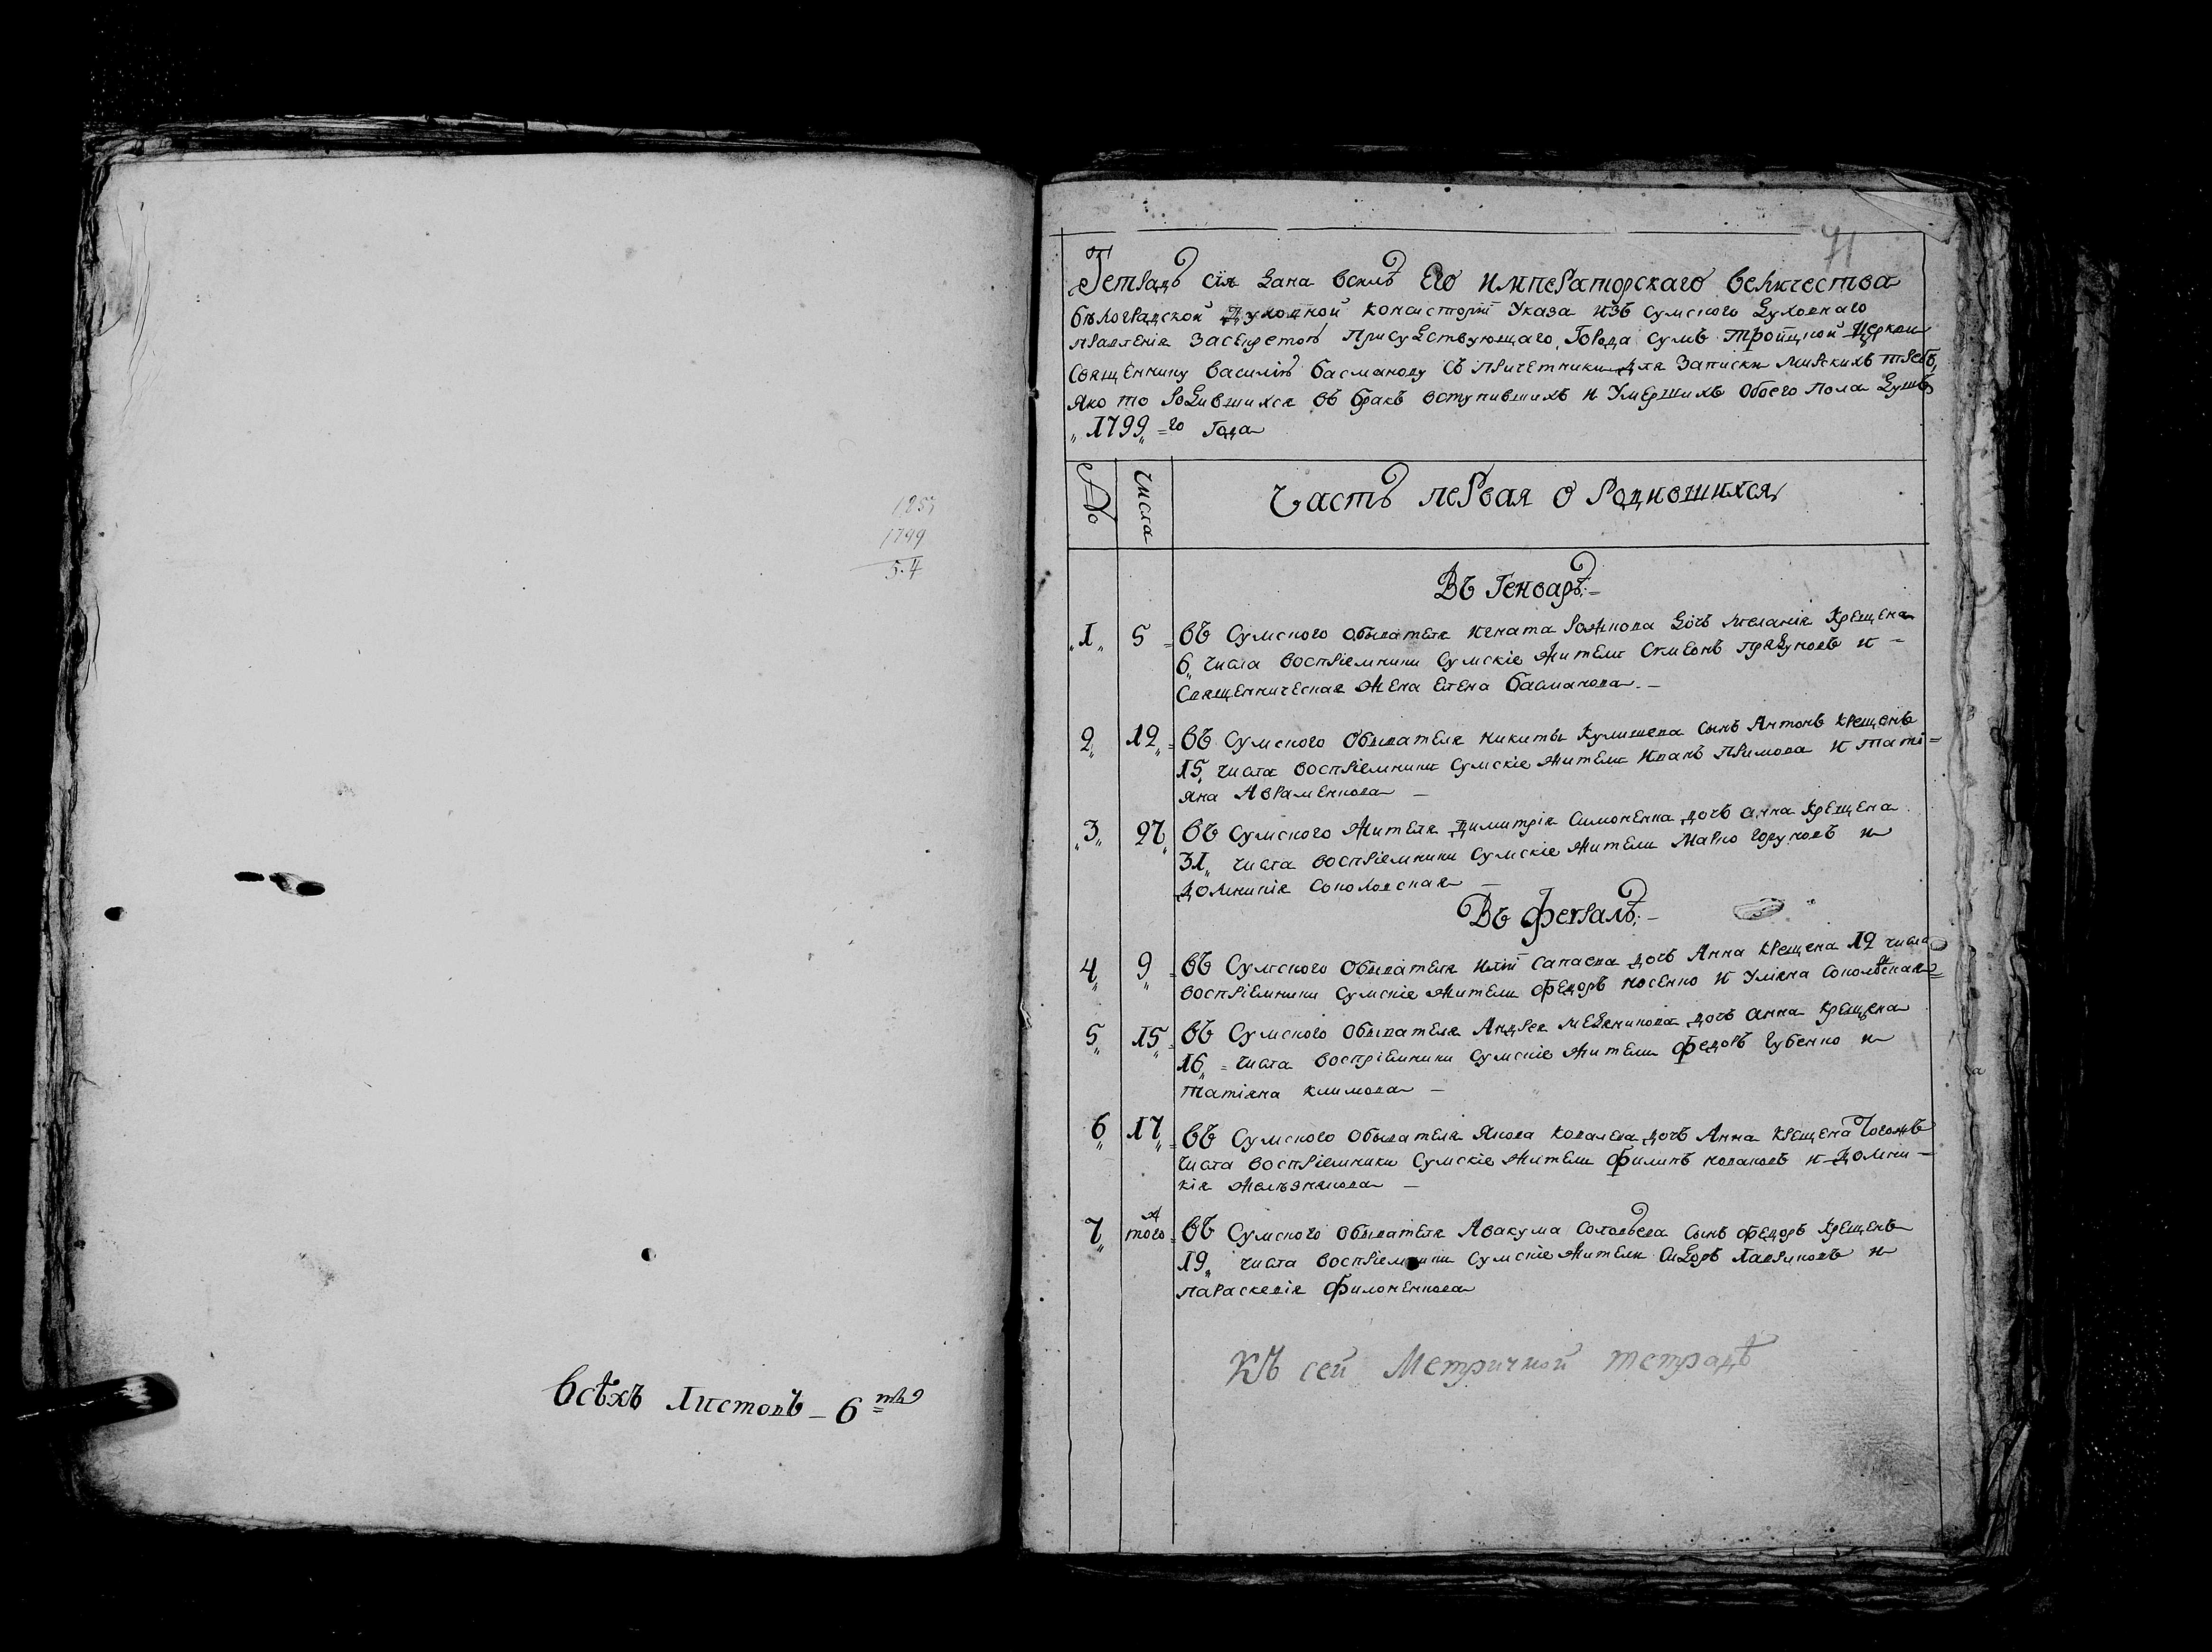 1853
1799
54
Всѣхъ листовъ – 6 ть
71
Тетрадь сiя дана всилѣ Его императорскаго величества
бѣлоградской духовной консисторiи Указа изъ сумского духовного
правленiя Присудствующаго, Города сумъ Тройцкой церкви
священнику василiю басманову съ причетники для записки мирскихъ требъ,
яко то родившихся въ бракъ вступившихъ и умершихъ обоего пола душъ
„1799„=го года
№
числа
Часть первая о родившихся
Въ Генварѣ:–
„1„ 5 въ сумского обывателя игната рожкова дочь меланiя крещена
6„ числа воспрiемники сумскiе жители симеонъ и –
священническая жена елена басманова. –
2„ 12„ въ сумского обывателя никиты кулишева сынъ Антонъ крещенъ
15„ числа воспрiемники сумскiе жители иванъ примова и татi=
яна Авраменкова –
„3„ 27„ въ сумского жителя димитрiя симоненка дочь анна крещена
31„ числа воспрiемники сумскiе жители Марко горуновъ и
домникiя соколовская –
Въ февралѣ:–
4„ 9„ въ сумского обывателя илiи сапаева дочь Анна крещена 12 числа
воспрiемники сумскiе жители федоръ носенко и улiяна соколовская
5„ 15„ въ сумского обывателя Андрея медяникова дочь анна крещена
16„ = числа воспрiемники сумскiе жители федоръ губенко и
татiяна климова –
6„ 17„ въ сумского обывателя якова ковалева дочь Анна крещена тогожъ
числа воспрiемники сумскiе жители филипъ коваковъ и домни –
кiя –
7„ того ж въ сумского обывателя Авакума соловьева сынъ федоръ крещенъ
19„ числа воспрiемники сумскiе жители сидоръ лавриковъ и
параскевiя филоненкова
Къ сей Метричной тетрадѣ